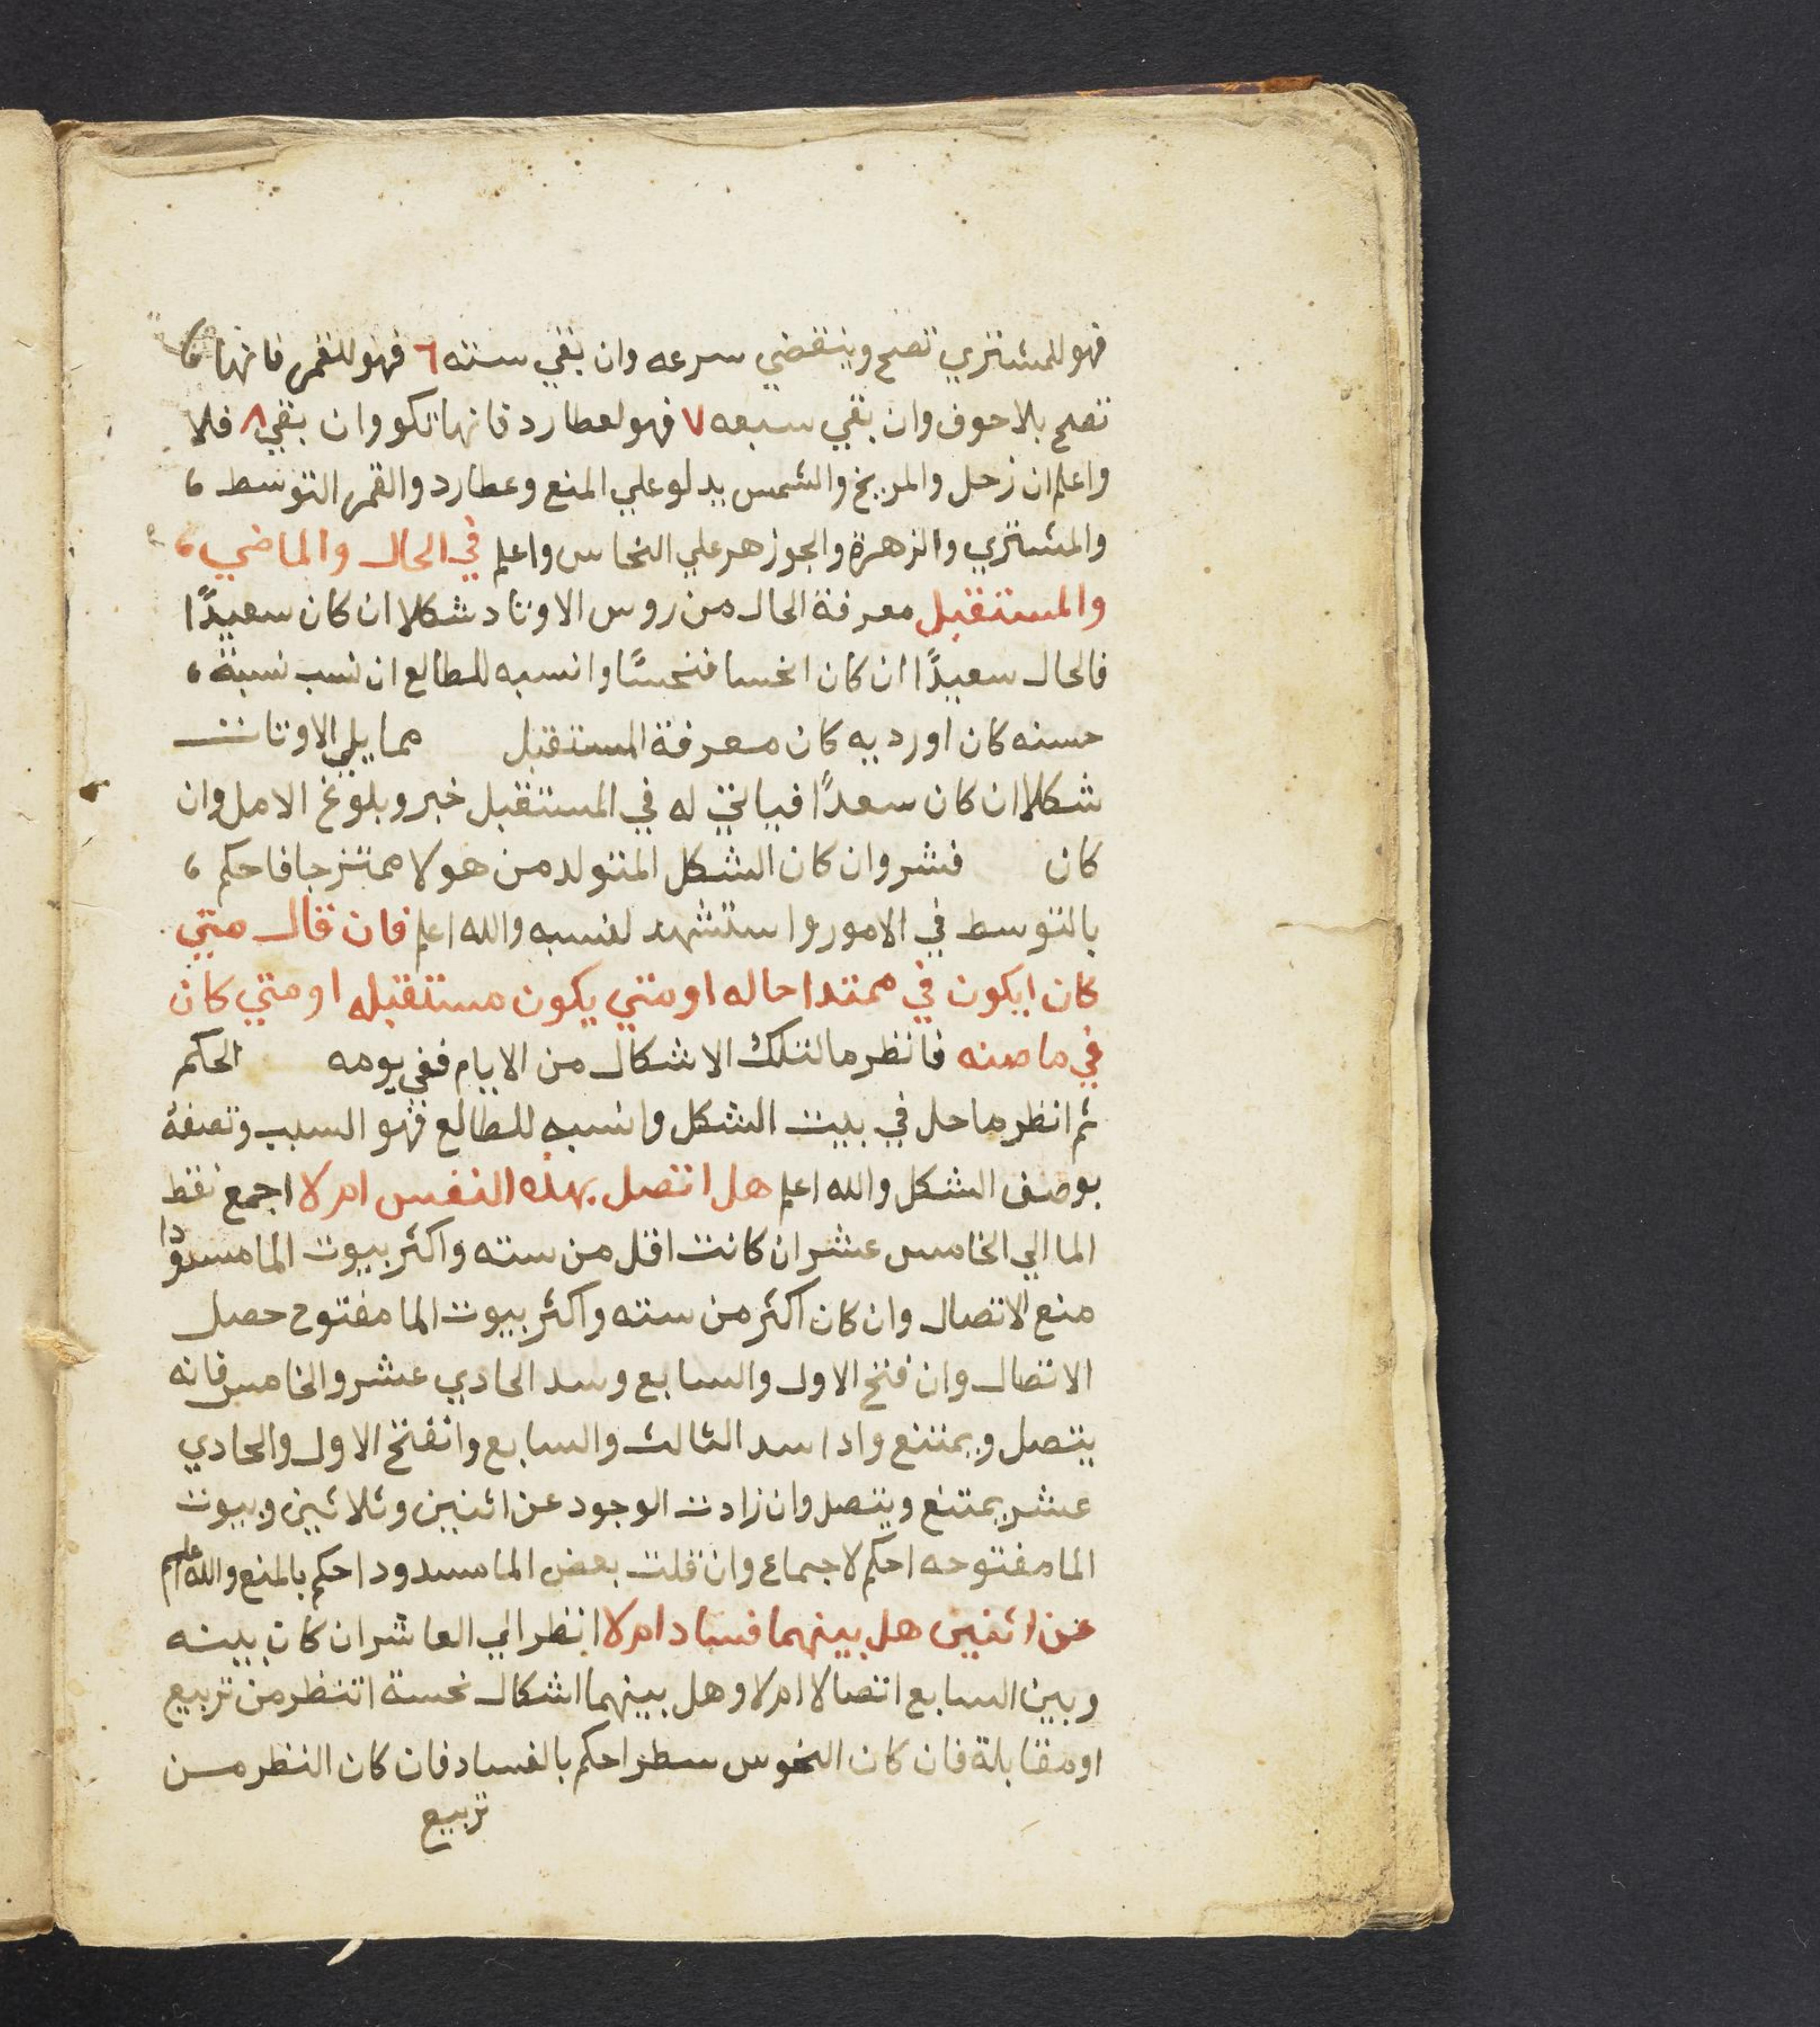 فهو للمشتري تصح وينقضي سرعه وان بقي سته ٦ فهو للقمر فانها
تصح بلا خوف وان بقي سبعه ٧ فهو لعطارد فانها تكو وان بقي ٨ فلا
واعلم ان زحل والمريخ والشمس يدلو علي المنع وعطارد والقمر التوسط ،
والمشتري والزهرة والجوزهر علي النحاس واعلم في الحال والماضي ،
والمستقبل معرفة الحال من روس الاوتاد شكلا ان كان سعيدًا
فالحال سعيدًا ان كان انحسا فنحسًا وانسبه للطالع ان نسب نسبة ،
حسنه كان اورديه كان معرفة المستقبل مما يلي الاوتات
شكلا ان كان سعدًا فياتي له في المستقبل خبر وبلوغ الامل وان
كان فشر وان كان الشكل المتولد من هولا ممتزجا فاحكم ،
بالتوسط في الامور واستشهد لنسبه والله اعلم فان قال متي
كان ايكون في ممتدا حاله او متي يكون مستقبله او متي كان
في ماضنه فانظر ما لتلك الاشكال من الايام ففي يومه الحكم
ثم انظر ما حل في بيت الشكل وانسبه للطالع فهو السبب وتصفة
بوصف الشكل والله اعلم هل اتصل بهذه النفس ام لا اجمع نقط
الما الي الخامس عشر ان كانت اقل من سته واكثر بيوت الما مسدودا
منع الاتصال وان كان اكثر من سته واكثر بيوت الما مفتوح حصل
الاتصال وان فتح الاول والسابع وسد الحادي عشر والخامس فانه
يتصل ويمتنع واذا سد الثالث والسابع وانفتح الاول والحادي
عشر يمتنع ويتصل وان زادت الوجود عن اثنين وثلاثين وبيوت
الما مفتوحه احكم لاجماع وان قلت بعض الما مسدود احكم بالمنع والله اعلم
عن اثنين هل بينهما فساد ام لا انظر الي العاشر ان كان بينه
وبين السابع اتصالا ام لا وهل بينهما اشكال نحسة اتنظر من تربيع
او مقابلة فان كان النحوس سطر احكم بالفساد فان كان النظر من
تربيع